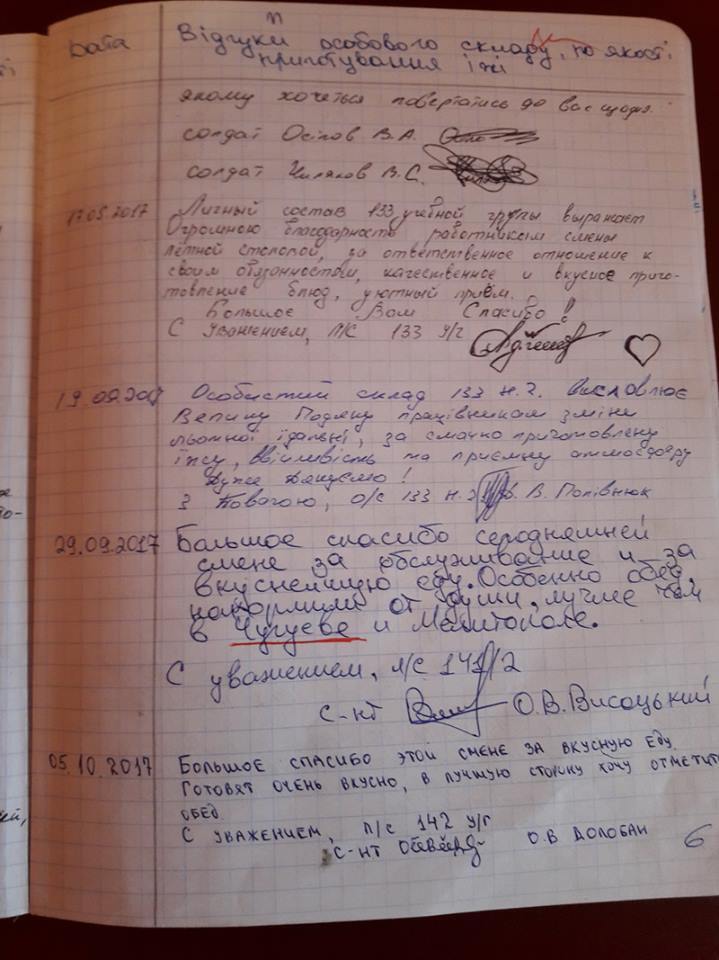 Дата
Відгуки особового складу, по якості
приготування їжі
якому хочеться повертатись до вас щодня.
солдат Осіпов В.А.
солдат Чиляков В.С.
17.05.2017 Личный состав 133 учебной группы выражает
Огромною благодарность работникам смены
лётной столовой, за ответственное отношение к
своим обязанностям, качественное и вкусное приго-
товление блюд, уютный приём.
Большое Вам Спасибо!
С Уважением, Л/С 133 у/г
19.09.2017 Особистий склад 133 н.г. висловлює
Велику Подяку працівникам зміни
льотної їдальні, за смачно приготовлену
їжу, ввічливість та приємну атмосферу
Дуже Дякуємо!
З Повагою, о/с 133 н.г. В. Попівнюк
29.09.2017 Большое спасибо сегодняшней
смене за обслуживание и за
вкуснейшую еду. Особенно обед,
накормили от души, лучше чем
в Чугуеве и Мелитополе.
С уважением, л/с 141/2
с-нт О.В.Висоцький
05.10.2017 Большое спасибо этой смене за вкусную еду.
Готовят очень вкусно, в лучшую сторону хочу отметить
обед
С уважением, л/с 142 у/г
с-нт О.В Долобан
6